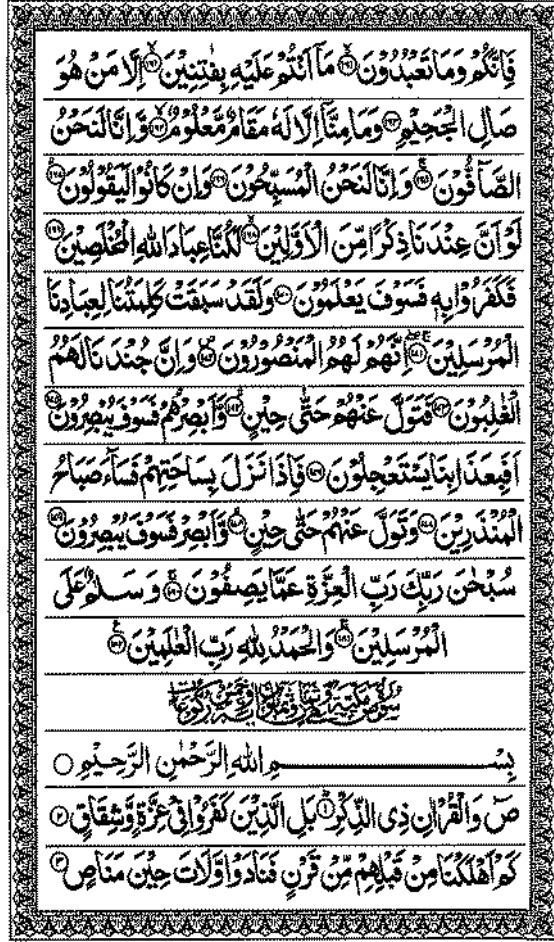 فَاِنَّكُمْ وَمَا تَعْبُدُوْنَ ۙ﴿۱۶۱﴾ مَاۤ اَنْتُمْ عَلَيْهِ بِفٰتِنِيْنَ ۙ﴿۱۶۲﴾ اِلَّا مَنْ هُوَ
صَالِ الْجَحِيْمِ ﴿۱۶۳﴾ وَمَا مِنَّاۤ اِلَّا لَهٗ مَقَامٌ مَّعْلُوْمٌ ۙ﴿۱۶۴﴾ وَّاِنَّا لَنَحْنُ
الصَّآفُّوْنَ ۚ﴿۱۶۵﴾ وَاِنَّا لَنَحْنُ الْمُسَبِّحُوْنَ ﴿۱۶۶﴾ وَاِنْ كَانُوْا لَيَقُوْلُوْنَ ۙ﴿۱۶۷﴾
لَوْ اَنَّ عِنْدَنَا ذِكْرًا مِّنَ الْاَوَّلِيْنَ ۙ﴿۱۶۸﴾ لَكُنَّا عِبَادَ اللّٰهِ الْمُخْلَصِيْنَ ﴿۱۶۹﴾
فَكَفَرُوْا بِهٖ فَسَوْفَ يَعْلَمُوْنَ ﴿۱۷۰﴾ وَلَقَدْ سَبَقَتْ كَلِمَتُنَا لِعِبَادِنَا
الْمُرْسَلِيْنَ ۚۖ﴿۱۷۱﴾ اِنَّهُمْ لَهُمُ الْمَنْصُوْرُوْنَ ۪﴿۱۷۲﴾ وَاِنَّ جُنْدَنَا لَهُمُ
الْغٰلِبُوْنَ ﴿۱۷۳﴾ فَتَوَلَّ عَنْهُمْ حَتّٰى حِيْنٍ ۙ﴿۱۷۴﴾ وَّاَبْصِرْهُمْ فَسَوْفَ يُبْصِرُوْنَ ﴿۱۷۵﴾
اَفَبِعَذَابِنَا يَسْتَعْجِلُوْنَ ﴿۱۷۶﴾ فَاِذَا نَزَلَ بِسَاحَتِهِمْ فَسَآءَ صَبَاحُ
الْمُنْذَرِيْنَ ﴿۱۷۷﴾ وَتَوَلَّ عَنْهُمْ حَتّٰى حِيْنٍ ۙ﴿۱۷۸﴾ وَّاَبْصِرْ فَسَوْفَ يُبْصِرُوْنَ ﴿۱۷۹﴾
سُبْحٰنَ رَبِّكَ رَبِّ الْعِزَّةِ عَمَّا يَصِفُوْنَ ۚ﴿۱۸۰﴾ وَسَلٰمٌ عَلَى
الْمُرْسَلِيْنَ ۚ﴿۱۸۱﴾ وَالْحَمْدُ لِلّٰهِ رَبِّ الْعٰلَمِيْنَ ﴿۱۸۲﴾
بِسْمِ اللّٰهِ الرَّحْمٰنِ الرَّحِيْمِ ○
صٓ وَالْقُرْاٰنِ ذِى الذِّكْرِ ؕ﴿۱﴾ بَلِ الَّذِيْنَ كَفَرُوْا فِيْ عِزَّةٍ وَّشِقَاقٍ ﴿۲﴾
كَمْ اَهْلَكْنَا مِنْ قَبْلِهِمْ مِّنْ قَرْنٍ فَنَادَوْا وَّلَاتَ حِيْنَ مَنَاصٍ ﴿۳﴾